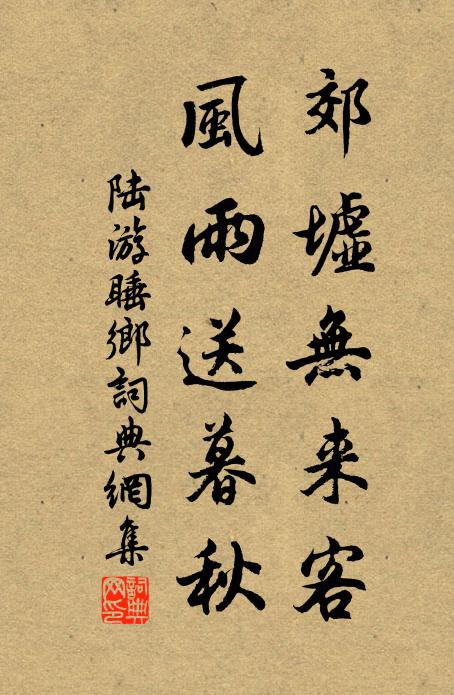 郊墟無来客
風雨送暮秋
陆游睡鄉詞典網集
詞典网印